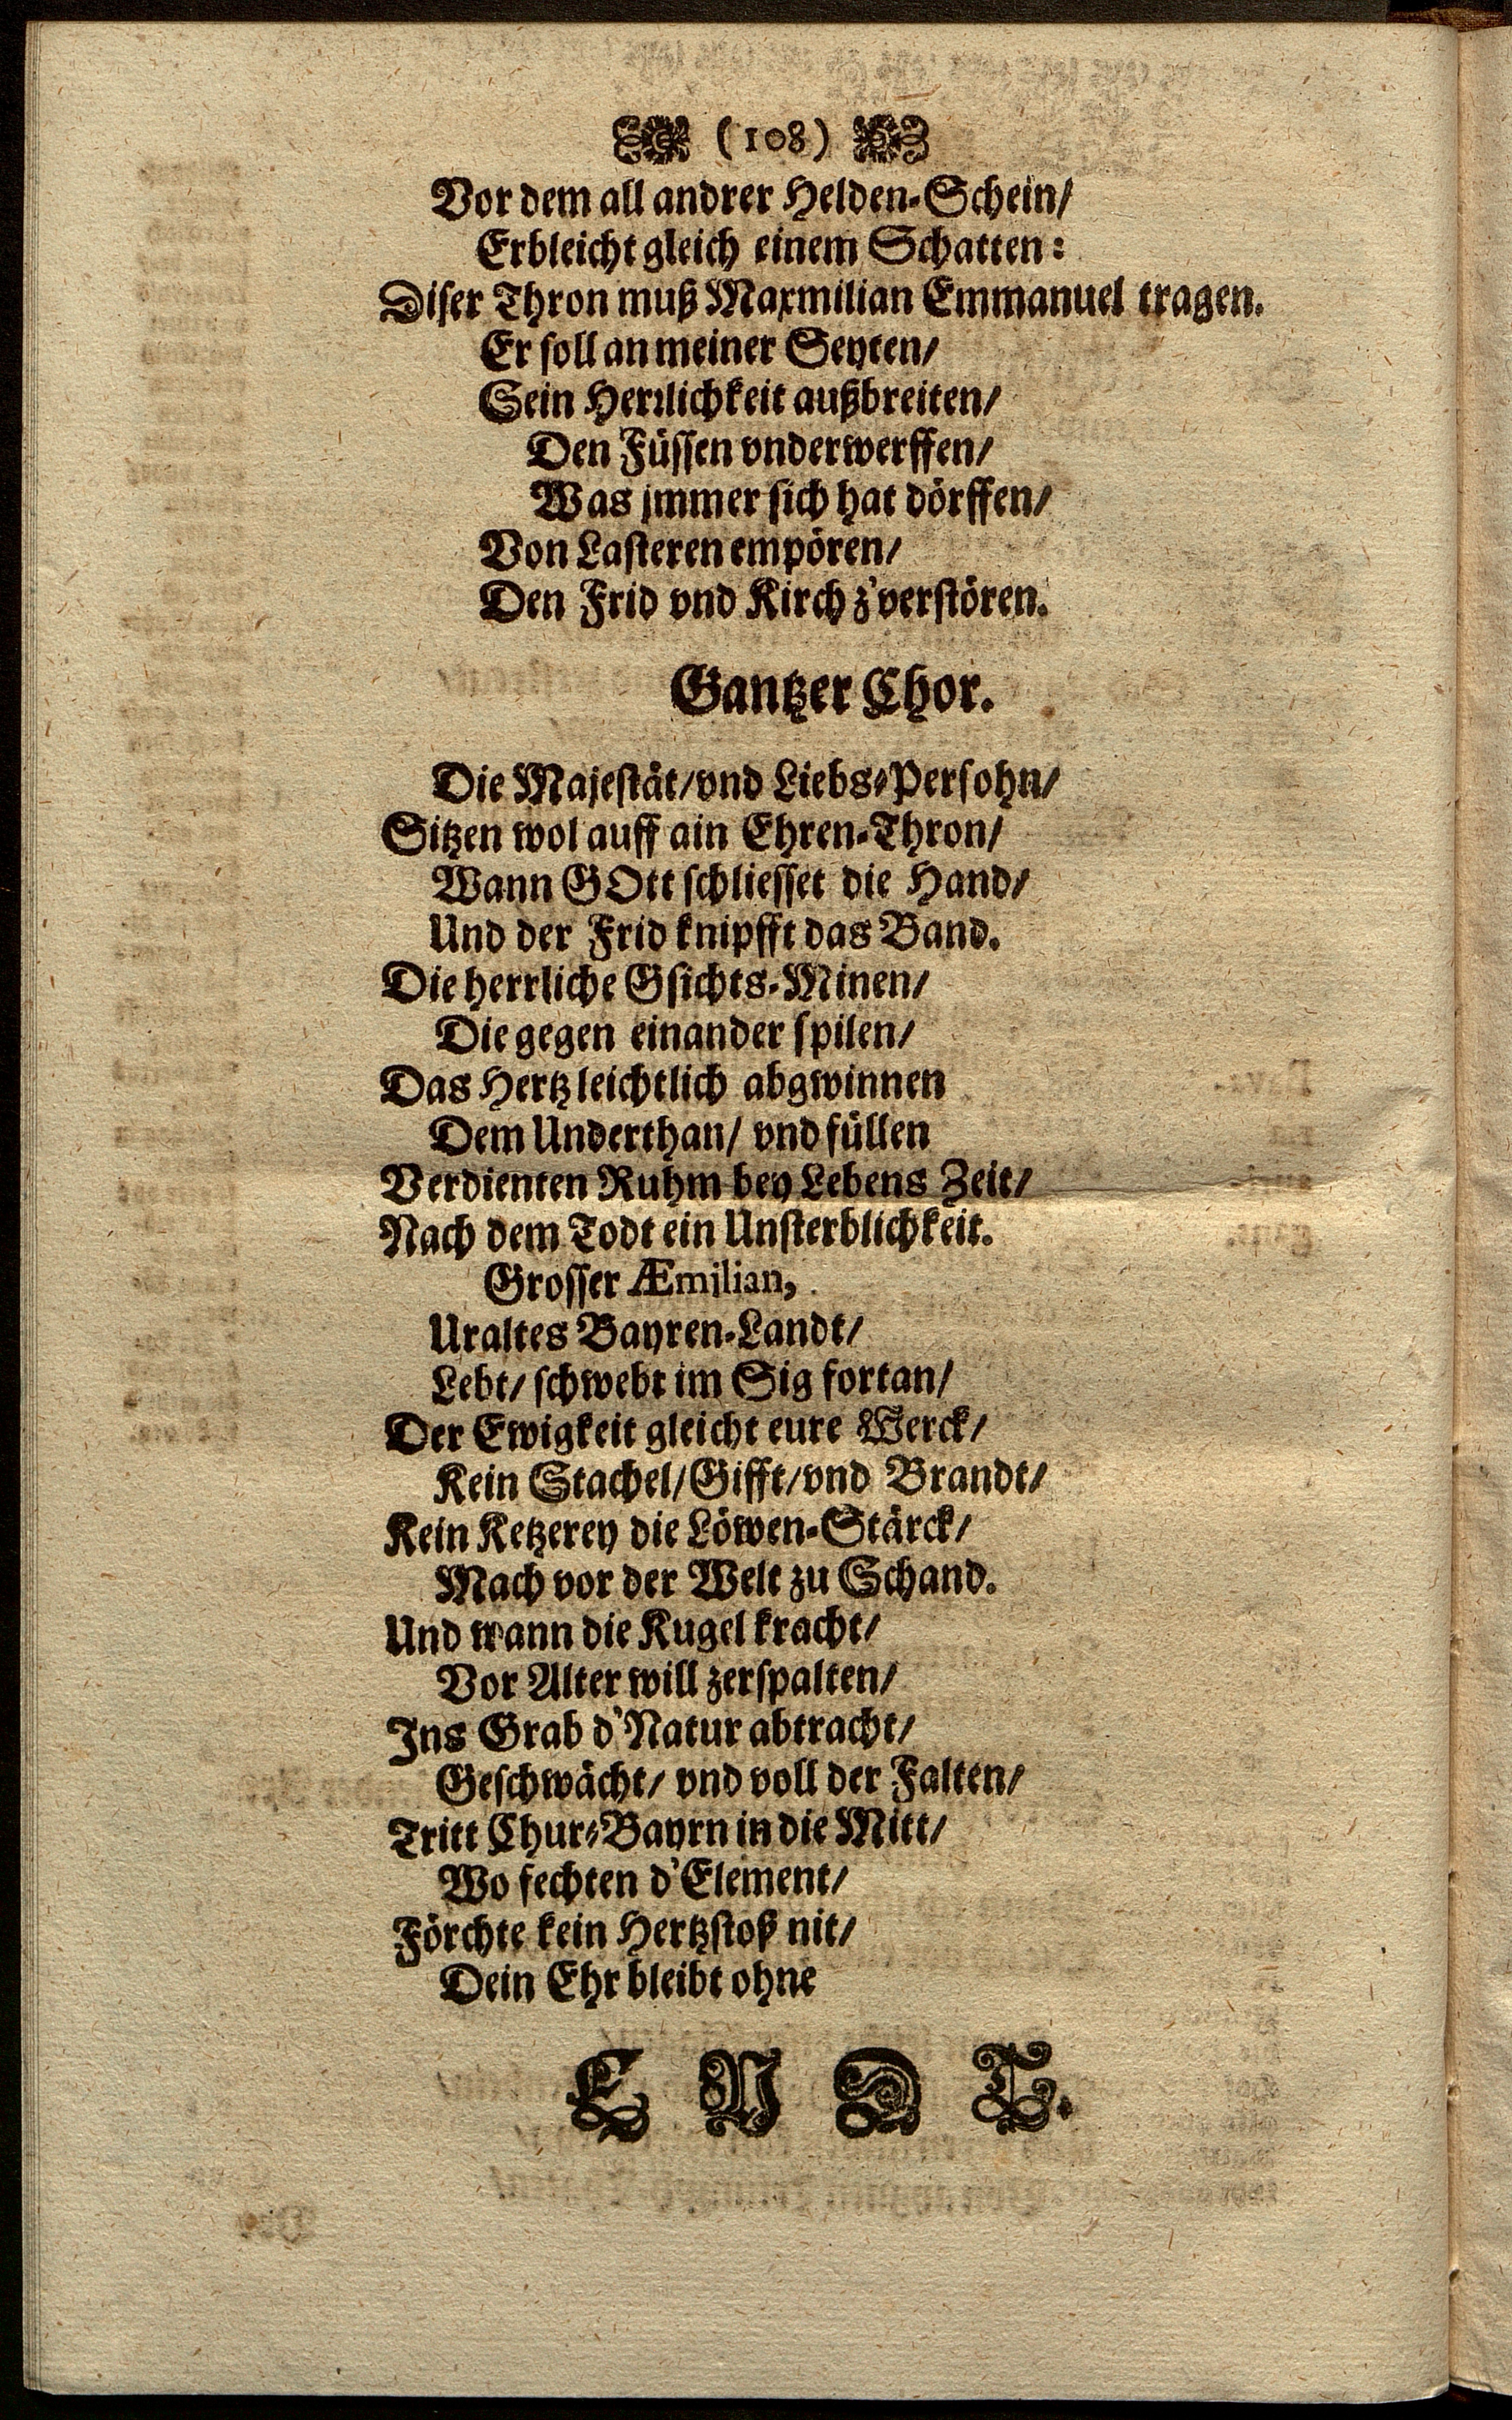 (108)
Vor dem all andrer Helden-Schein/
Erbleicht gleich einem Schatten:
Diser Thron muß Maxmilian Emmanuel tragen.
Er soll an meiner Seyten/
Sein Herrlichkeit außbreiten/
Den Füssen vnderwerffen/
Was jmmer sich hat dörffen/
Von Lasteren empören/
Den Frid vnd Kirch z'verstören.
Gantzer Chor.
Die Majestät/vnd Liebs-Persohn/
Sitzen wol auff ain Ehren-Thron/
Wann GOtt schliesset die Hand/
Und der Frid knipfft das Band.
Die herrliche Gsichts-Minen/
Die gegen einander spilen/
Das Hertz leichtlich abgwinnen
Dem Underthan/ vnd füllen
Verdienten Ruhm bey Lebens Zeit/
Nach dem Todt ein Unsterblichkeit.
Grosser Æmilian,
Uraltes Bayren-Landt/
Lebt/ schwebt im Sig fortan/
Der Ewigkeit gleicht eure Werck/
Kein Stachel/Gifft/vnd Brandt/
Kein Ketzerey die Löwen-Stärck/
Mach vor der Welt zu Schand.
Und wann die Kugel kracht/
Vor Alter will zerspalten/
Ins Grab d'Natur abtracht/
Geschwächt/ vnd voll der Falten/
Tritt Chur-Bayrn in die Mitt/
Wo fechten d'Element/
Förchte kein Hertzstoß nit/
Dein Ehr bleibt ohne
E N D T.